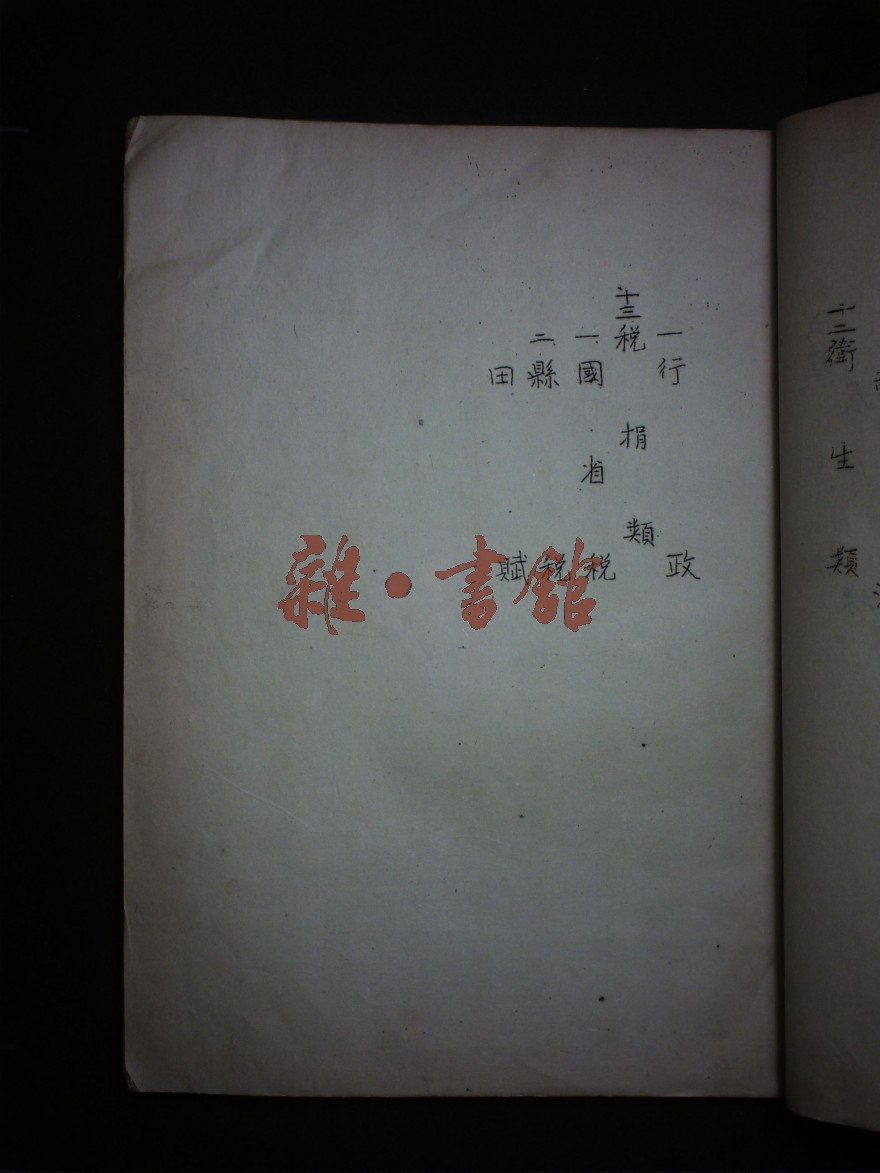 十二衛生類
一行政
十三稅捐類
一國省稅
二縣稅
田賦
雜·書館